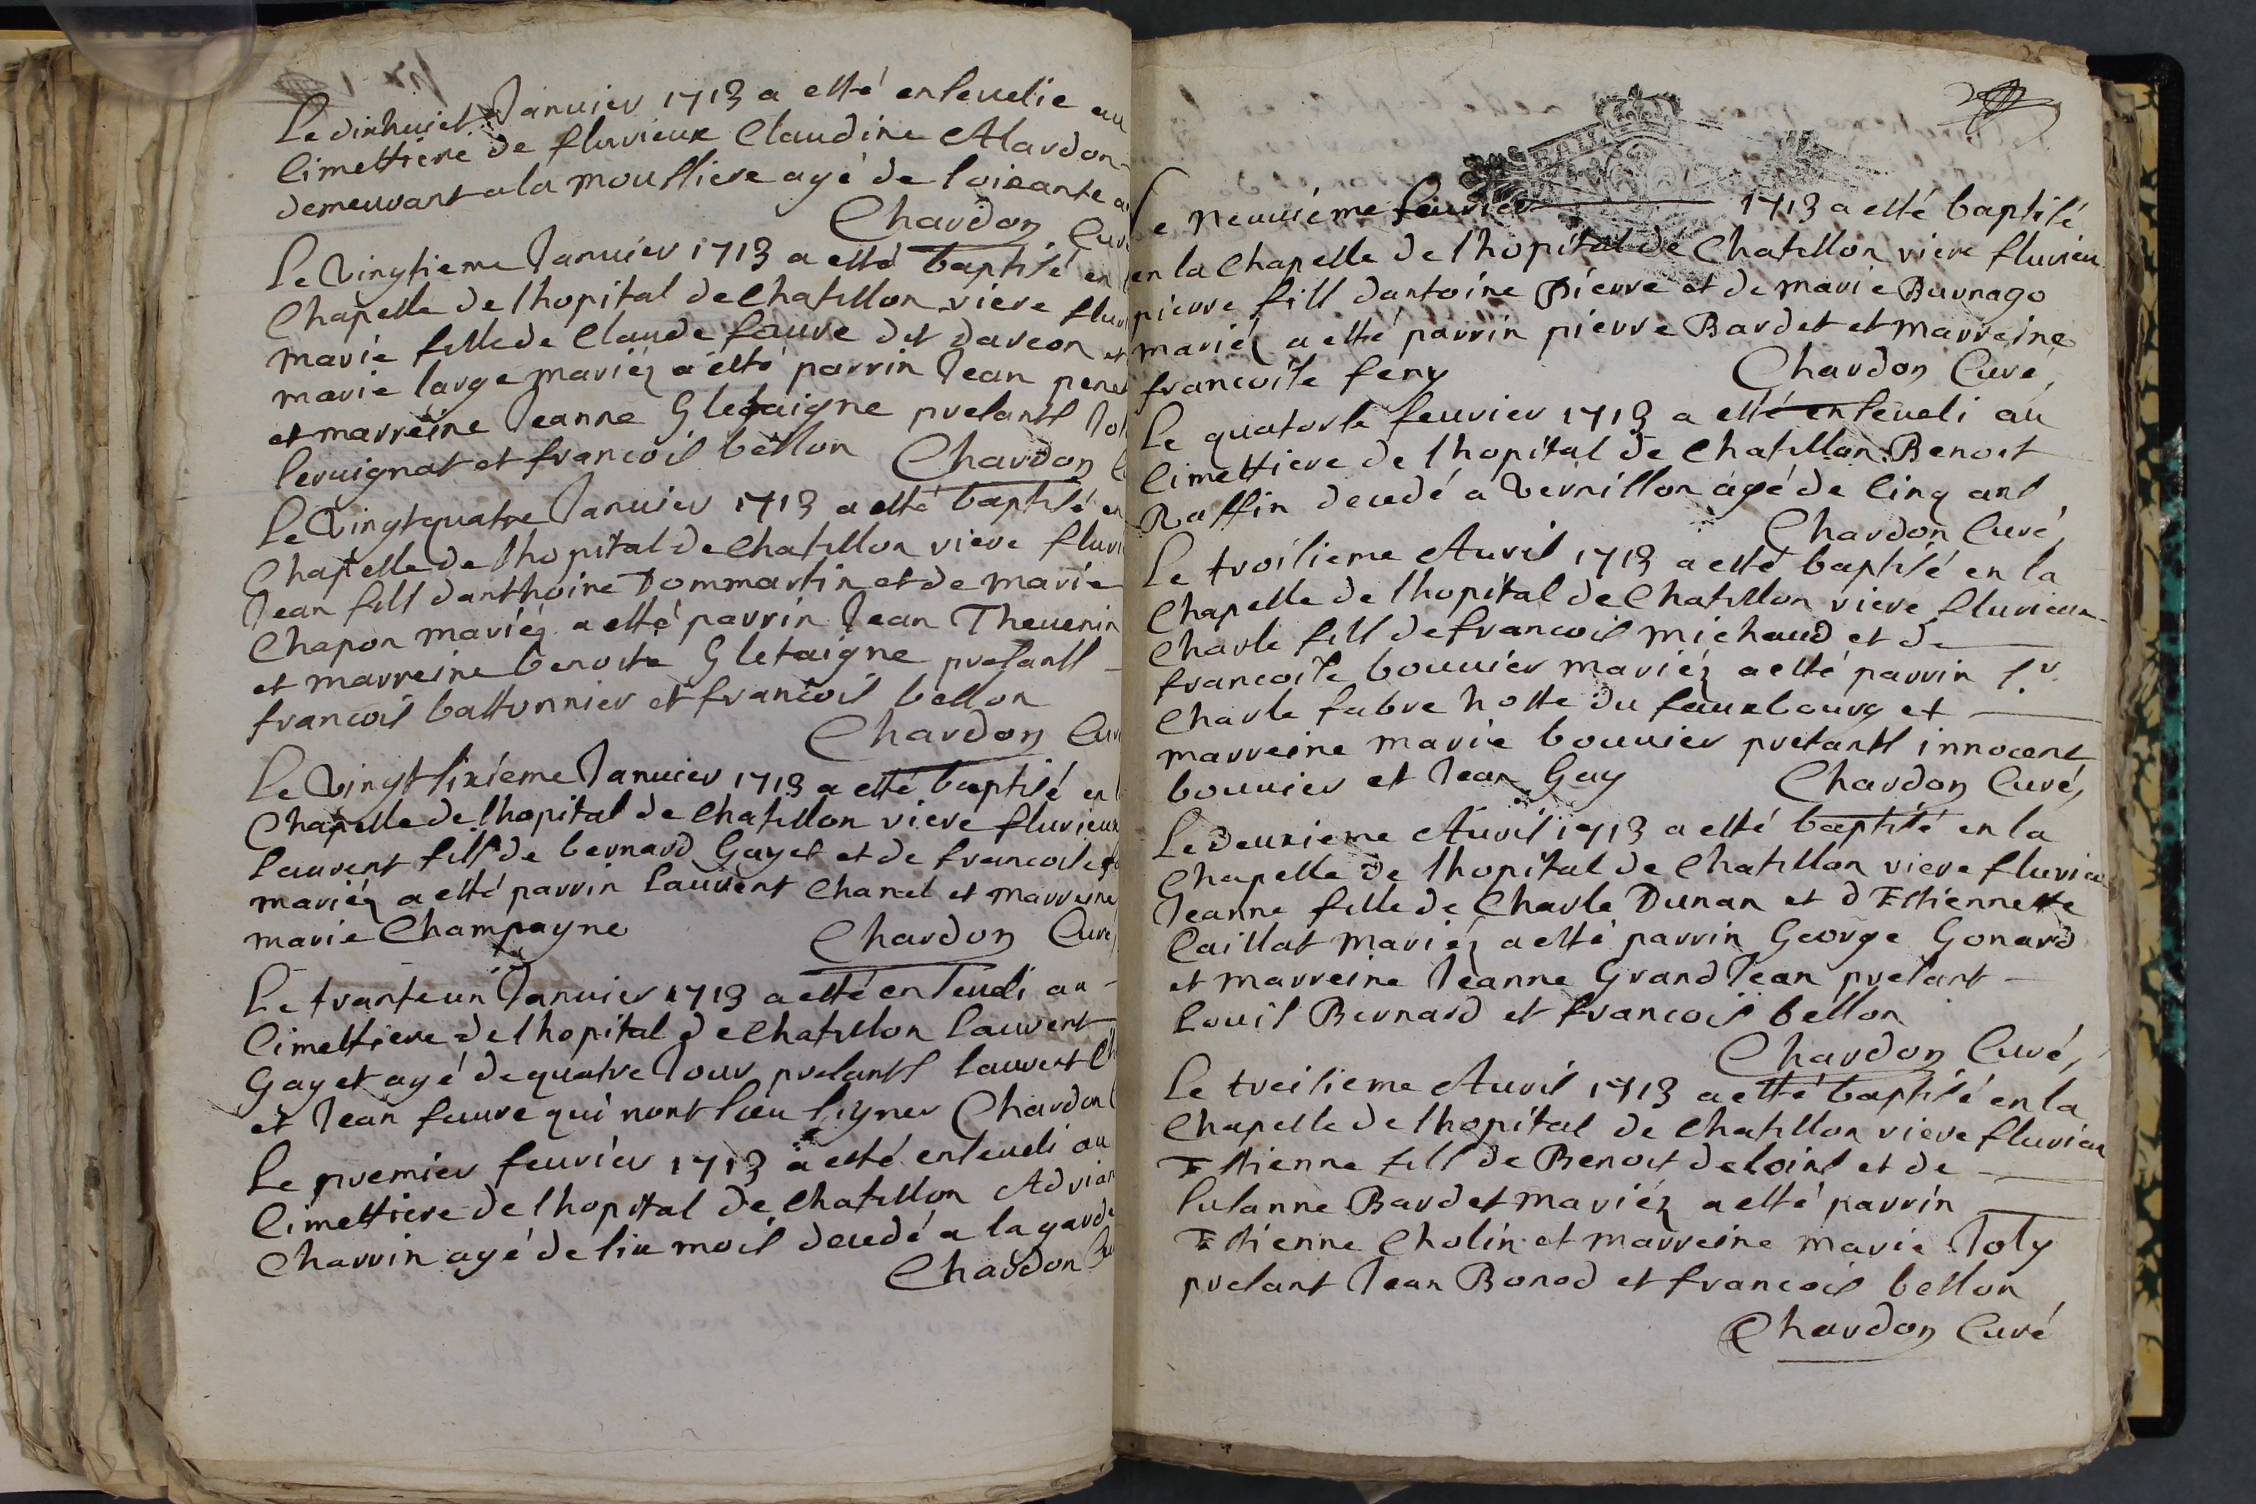 Le dixhuiet Januier 1713 a esté enseuelie au
Cimettiere de fluvieux Claudine Alardon
demeuvant a la mousliere agé de soixante
Chardon Curé
Le Vingtieme Januier 1713 a esté baptisé en
Chapelle de lhopital de Chatillon viere
marie fille de Claude fauve dit darcon et
marie large mariéz a esté parrin Jean
et marreine Jeanne Gletaigne presants
seruignat et francois bellon Chardon
Le Vingtquatre Januier 1713 a esté baptisé en
Chapelle de lhopital de Chatillon viere
Jean fils danthoine Dommartin et de marie
Chapon mariéz a esté parrin Jean Theuenin
et marreine benoite Gletaigne presants
francois bastonnier et francois bellon
Chardon
Le Vingt sixiéme Januier 1713 a esté baptisé en
Chapelle de lhopital de Chatillon viere fluvieux
laurent fils de bernard Gayet et de francoise
mariéz a esté parrin laurent Chanel et marreine
marie Champagne Chardon Curé
Le tranteun Januier 1713 a esté enseueli au
Cimettiere de lhopital de Chatillon laurent
Gayet agé de quatre Jour presants laurent
et Jean fauve qui nont sceu signer Chardon
Le premier feurier 1713 a esté enseueli au
Cimettiere de lhopital de Chatillon
Charrin agé de six mois decedé a la garde
Chardon
Le neuuiéme feurier 1713 a esté baptisé
en la Chapelle de lhopital de Chatillon viere fluvieu
pierre fils dantoine Pierre et de marie Burnago
mariéz a esté parrin pierre Bardet et marreine
francoise feny Chardon Curé,
Le quatorse feurier 1713 a esté enseueli au
Cimettiere de lhopital de Chatillon Benoit
Raffin decedé a Vernillon agé de Cinq ans
Chardon Curé,
Le troisiieme Auril 1713 a esté baptisé en la
Chapelle de lhopital de Chatillon viere fluvieux
Charle fils de francois michaud et de
francoise bouuier mariéz a esté parrin sr.
Charle fabre hoste du fauxbourg et
marreine marie bouuier presants innocent
bouuier et Jean Gay Chardon Curé,
Le deuxieme Auril 1713 a esté baptisé en la
Chapelle de lhopital de Chatillon viere fluvieu
Jeanne fille de Charle Dunan et dEstiennette
Caillat mariéz a esté parrin George Gonard
et marreine Jeanne GrandJean presant
Louis Bernard et francois bellon
Chardon Curé,
Le treisieme Auril 1713 a esté baptisé en la
Chapelle de lhopital de Chatillon viere fluvieu
Estienne fils de Benoit deloins et de
susanne Bardet mariéz a esté parrin
Estienne Cholin et marreine marie Joly
presant Jean Bonod et francois bellon
Chardon Curé